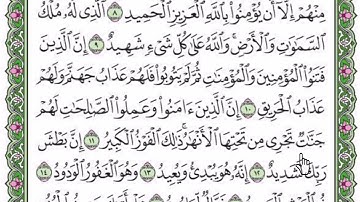 مِنْهُمْ إِلَّا أَن يُؤْمِنُوا۟ بِٱللَّهِ ٱلْعَزِيزِ ٱلْحَمِيدِ ٨ ٱلَّذِى لَهُۥ مُلْكُ
ٱلسَّمَٰوَٰتِ وَٱلْأَرْضِ ۚ وَٱللَّهُ عَلَىٰ كُلِّ شَىْءٍ شَهِيدٌ ٩ إِنَّ ٱلَّذِينَ
فَتَنُوا۟ ٱلْمُؤْمِنِينَ وَٱلْمُؤْمِنَٰتِ ثُمَّ لَمْ يَتُوبُوا۟ فَلَهُمْ عَذَابُ جَهَنَّمَ وَلَهُمْ
عَذَابُ ٱلْحَرِيقِ ١٠ إِنَّ ٱلَّذِينَ ءَامَنُوا۟ وَعَمِلُوا۟ ٱلصَّٰلِحَٰتِ لَهُمْ
جَنَّٰتٌ تَجْرِى مِن تَحْتِهَا ٱلْأَنْهَٰرُ ۚ ذَٰلِكَ ٱلْفَوْزُ ٱلْكَبِيرُ ١١ إِنَّ بَطْشَ
رَبِّكَ لَشَدِيدٌ ١٢ إِنَّهُۥ هُوَ يُبْدِئُ وَيُعِيدُ ١٣ وَهُوَ ٱلْغَفُورُ ٱلْوَدُودُ ١٤